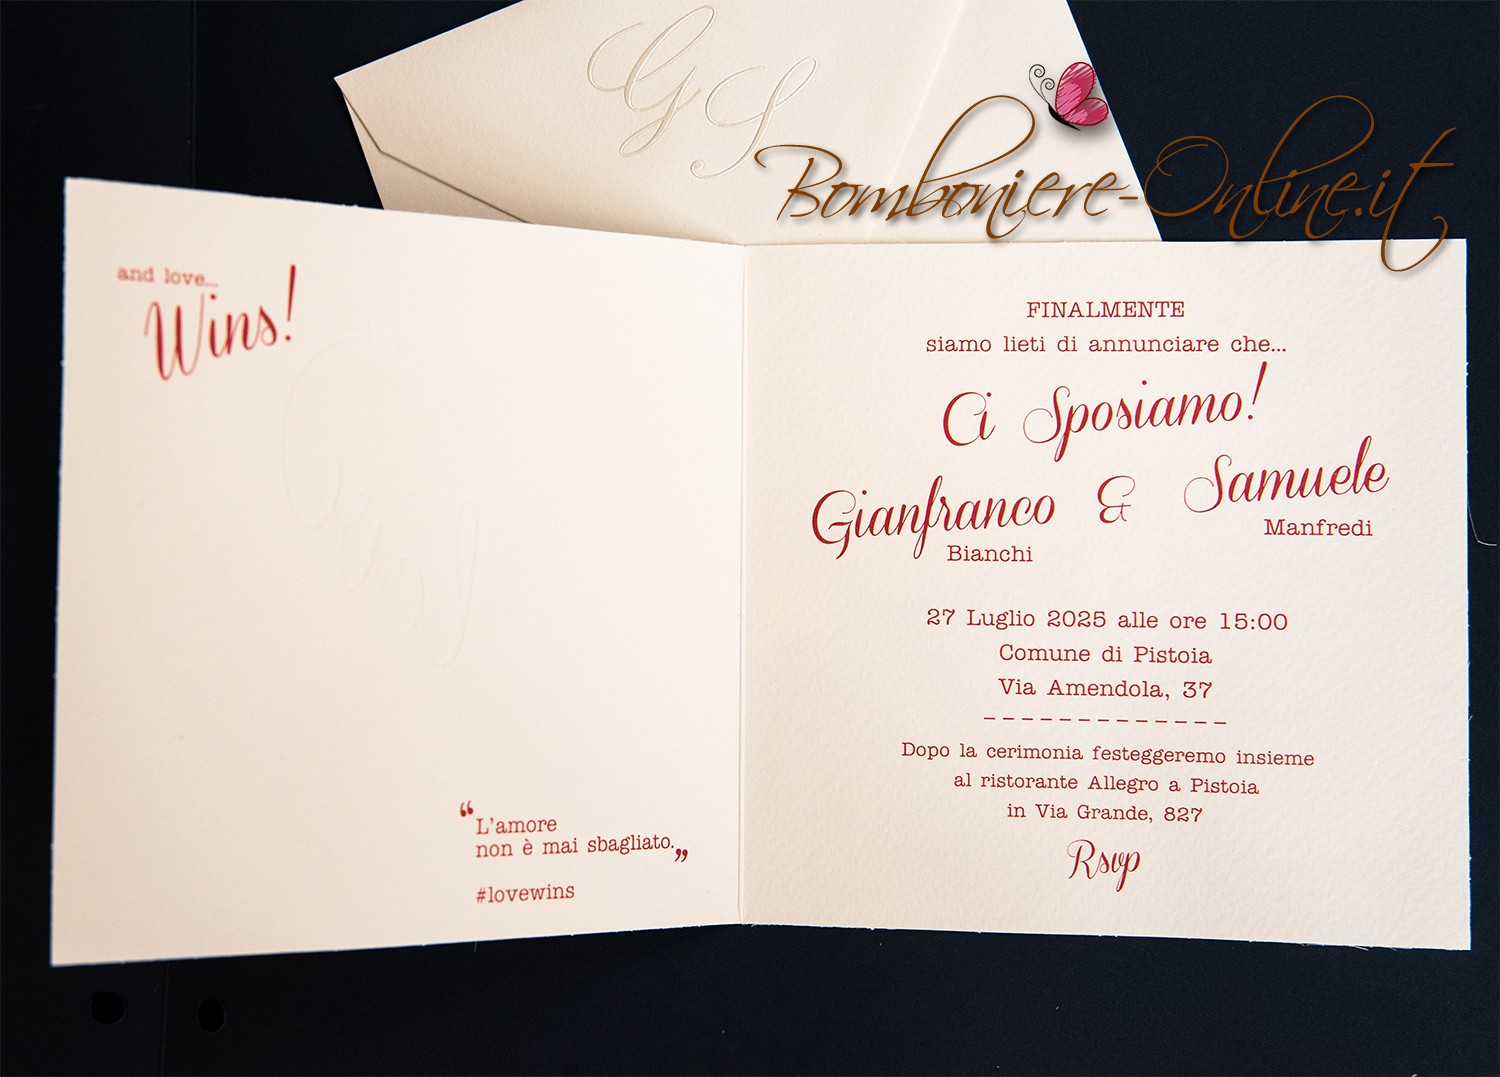 G S
Bomboniere-Online.it
and love...
Wins!
“L'amore
non è mai sbagliato.„
#lovewins
FINALMENTE
siamo lieti di annunciare che...
Ci Sposiamo!
Gianfranco & Samuele
Bianchi Manfredi
27 Luglio 2025 alle ore 15:00
Comune di Pistoia
Via Amendola, 37
-------------
Dopo la cerimonia festeggeremo insieme
al ristorante Allegro a Pistoia
in Via Grande, 827
Rsvp